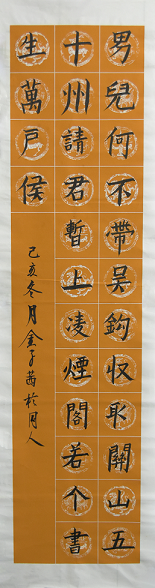 男兒何不帶吳鉤收取關山五
十州請君暫上凌煙閣若个書
生萬戶侯
己亥冬月金子茜於同人